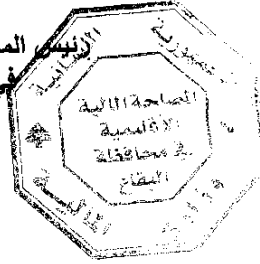 رئيس
في
الجمهورية اللبنانية
المصلحة المالية
الاقليمية
في محافظة
البقاع
وزارة المالية